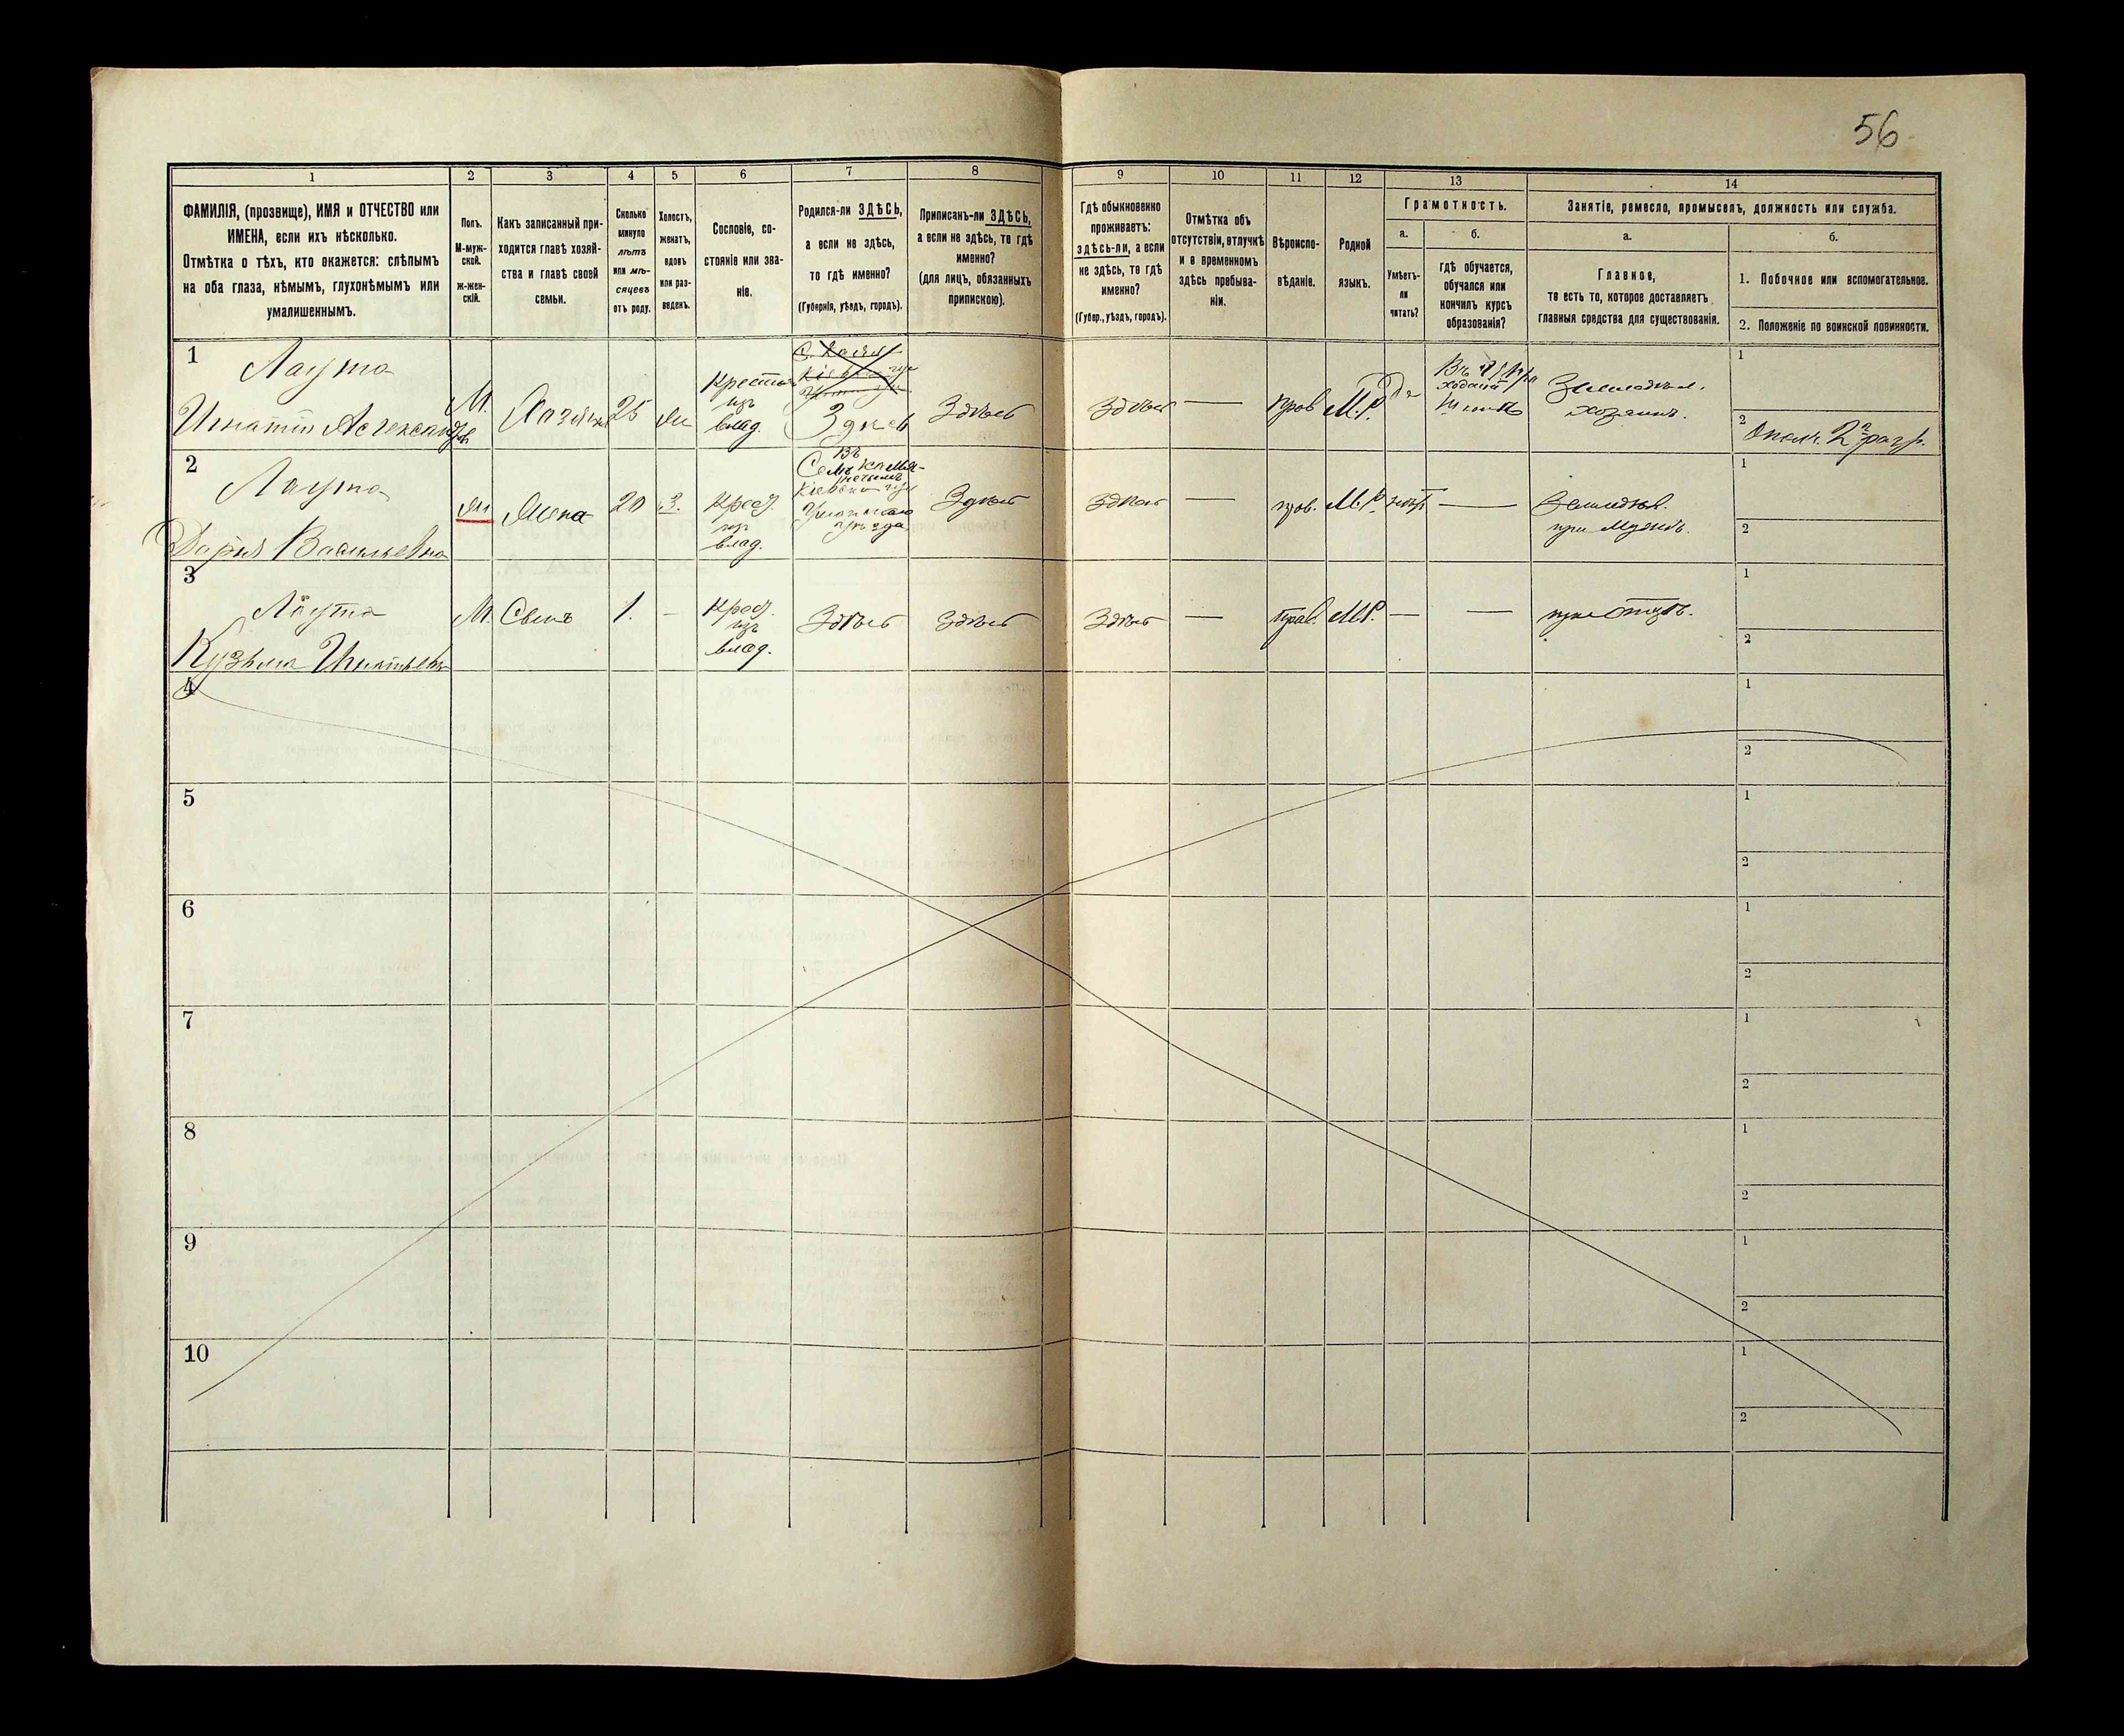 56
1 2 3 4 5 6 7 8 9 10 11 12 13 14
ФАМИЛІЯ, (прозвище), ИМЯ и ОТЧЕСТВО или
ИМЕНА, если ихъ нѣсколько.
Отмѣтка о тѣхъ, кто окажется: слѣпымъ
на оба глаза, нѣмымъ, глухонѣмымъ или
умалишеннымъ.
Полъ.
М-муж-
ской.
Ж-жен-
скій.
Какъ записанный при-
ходится главѣ хозяй-
ства и главѣ своей
семьи.
Сколько
минуло
лѣтъ
или мѣ-
сяцевъ
отъ роду.
Холостъ,
женатъ,
вдовъ
или раз-
веденъ.
Сословіе, со-
стояніе или зва-
ніе.
Родился-ли ЗДѢСЬ,
а если не здѣсь,
то гдѣ именно?
(Губернія, уѣздъ, городъ).
Приписанъ-ли ЗДѢСЬ,
а если не здѣсь, то гдѣ
именно?
(для лицъ, обязанныхъ
припискою).
Гдѣ обыкновенно
проживаетъ:
здѣсь-ли, а если
не здѣсь, то гдѣ
именно?
(Губер., уѣздъ, городъ).
Отмѣтка объ
отсутствіи, отлучкѣ
и о временномъ
здѣсь пребыва-
ніи.
Вѣроиспо-
вѣданіе.
Родной
языкъ.
Грамотность.
а.
Умѣетъ-
ли
читать?
б.
гдѣ обучается,
обучался или
кончилъ курсъ
образованія?
Занятіе, ремесло, промыселъ, должность или служба.
а.
Главное,
то есть то, которое доставляетъ
главныя средства для существованія.
б.
1. Побочное или вспомогательное.
2. Положеніе по воинской повинности.
1
Лаута
Игнатій Александровъ
М.
Хозяинъ
25
Ж
Крестья
изъ
влад.
Здѣсь
Здѣсь
Здѣсь
—
прав
М.Р.
Да
школѣ
Земледѣл.
хозяинъ.
1
2 Ополч. 2 разр.
2
Лаута
Дарья Васильевна
Ж
Жена
20
З.
Крест.
изъ
влад.
Кіевской губ
Уманскаго
уѣзда
Здѣсь
Здѣсь
—
прав.
М.Р.
нѣтъ
—
Земледѣл.
при мужѣ.
1
2
3
Лаута
Кузьма Игнатьевъ
М.
Сынъ
1.
—
Крест.
изъ
влад.
Здѣсь
Здѣсь
Здѣсь
—
прав.
М.Р.
—
—
при отцѣ.
1
2
4
1
2
5
1
2
6
1
2
7
1
2
8
1
2
9
1
2
10
1
2